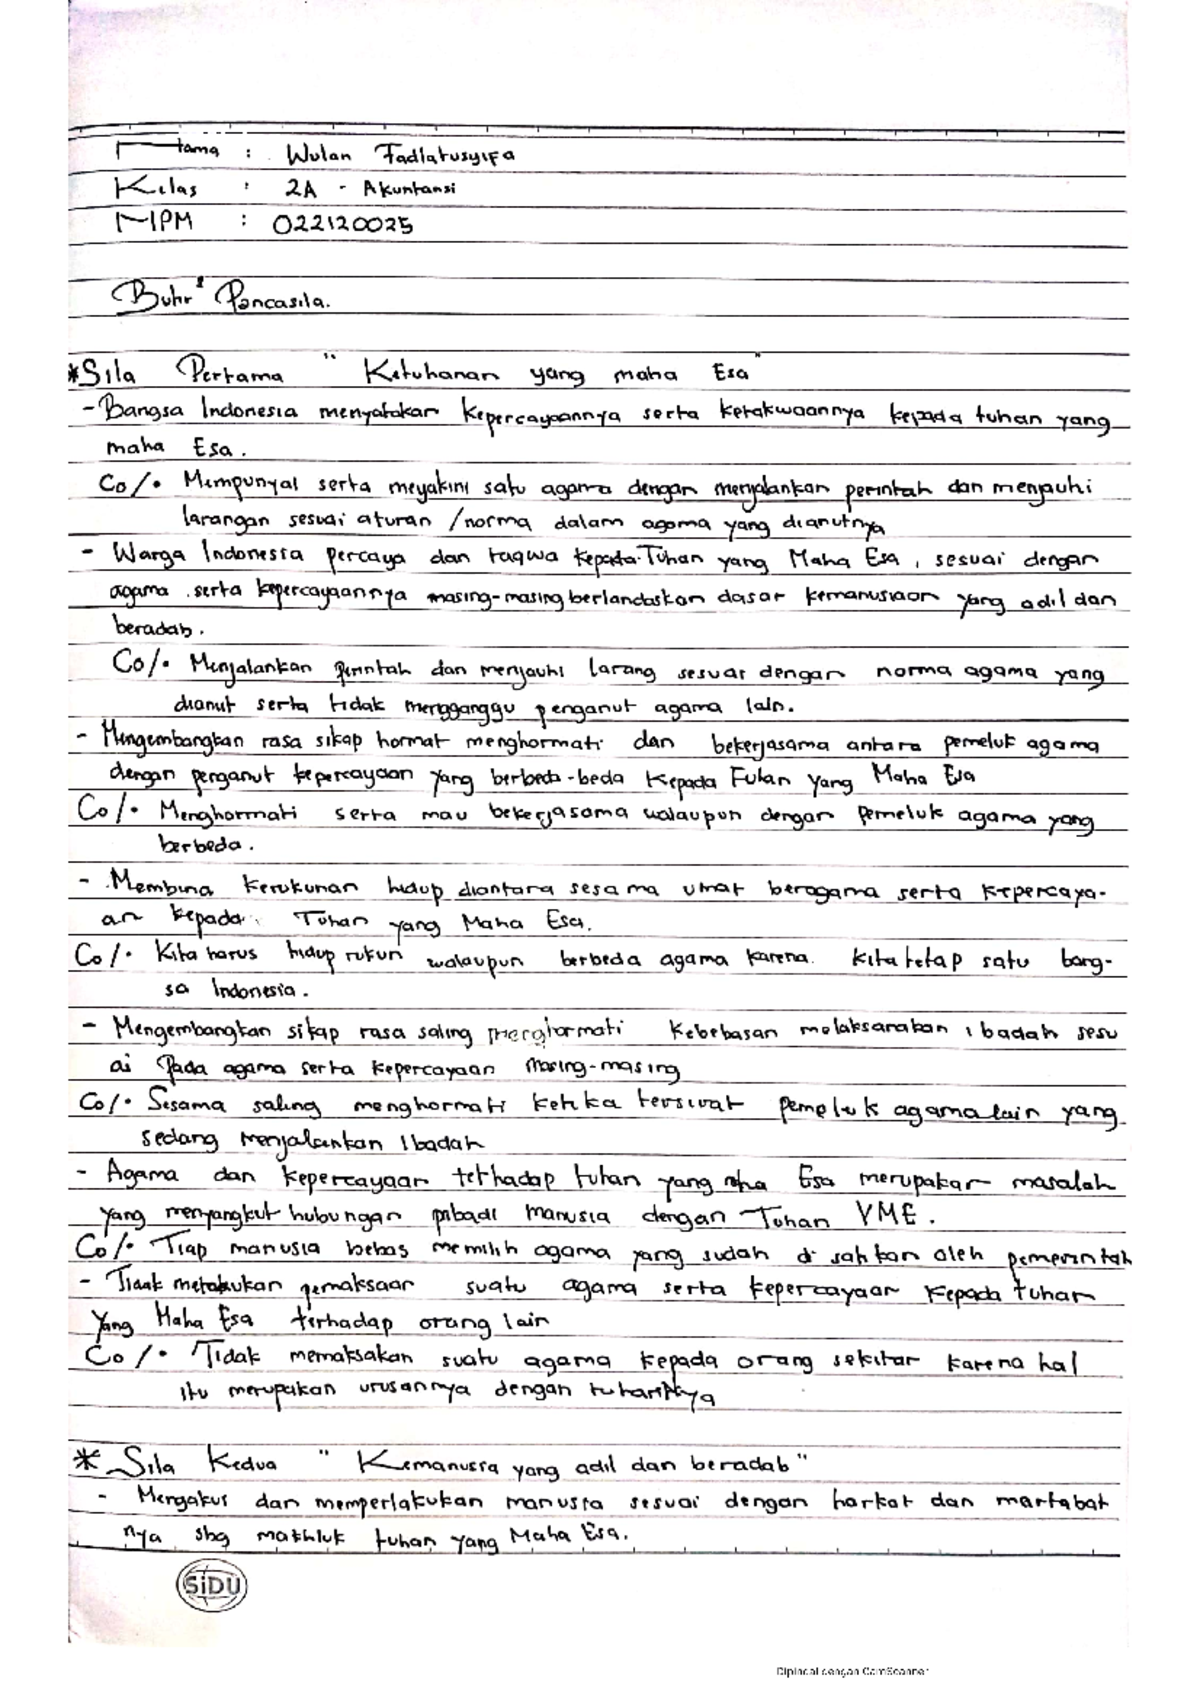 Nama : Wulan Fadlatusyifa
Kelas : 2A - Akuntansi
NPM : 022120025
Butir² Pancasila.
*Sila Pertama " Ketuhanan yang maha Esa "
- Bangsa Indonesia menyatakan kepercayaannya serta ketakwaannya kepada tuhan yang
maha Esa.
Co/. Mempunyai serta meyakini satu agama dengan menjalankan perintah dan menjauhi
larangan sesuai aturan /norma dalam agama yang dianutnya
- Warga Indonesia percaya dan taqwa kepada Tuhan yang Maha Esa, sesuai dengan
agama serta kepercayaannya masing-masing berlandaskan dasar kemanusiaan yang adil dan
beradab.
Co/. Menjalankan perintah dan menjauhi larang sesuai dengan norma agama yang
dianut serta tidak mengganggu penganut agama lain.
- Mengembangkan rasa sikap hormat menghormati dan bekerjasama antara pemeluk agama
dengan penganut kepercayaan yang berbeda-beda kepada Tuhan Yang Maha Esa
Co/. Menghormati serta mau bekerjasama walaupun dengan pemeluk agama yang
berbeda.
- Membina kerukunan hidup diantara sesama umat beragama serta kepercaya-
an kepada Tuhan yang Maha Esa.
Co/. Kita harus hidup rukun walaupun berbeda agama karena kita tetap satu bang-
sa Indonesia.
- Mengembangkan sikap rasa saling menghormati kebebasan melaksanakan ibadah sesu
ai pada agama serta kepercayaan masing-masing
Co/. Sesama saling menghormati ketika tersirat pemeluk agama lain yang
sedang menjalankan ibadah
- Agama dan kepercayaan terhadap tuhan yang maha Esa merupakan masalah
yang menyangkut hubungan pribadi manusia dengan Tuhan YME.
Co/. Tiap manusia bebas memilih agama yang sudah di sahkan oleh pemerintah
- Tidak melakukan pemaksaan suatu agama serta kepercayaan kepada tuhan
Yang Maha Esa terhadap orang lain
Co/. Tidak memaksakan suatu agama kepada orang sekitar karena hal
itu merupakan urusannya dengan tuhannya
* Sila Kedua " Kemanusia yang adil dan beradab "
- Mengakui dan memperlakukan manusia sesuai dengan harkat dan martabat
nya sbg makhluk tuhan yang Maha Esa.
SiDU
Dipindai dengan CamScanner